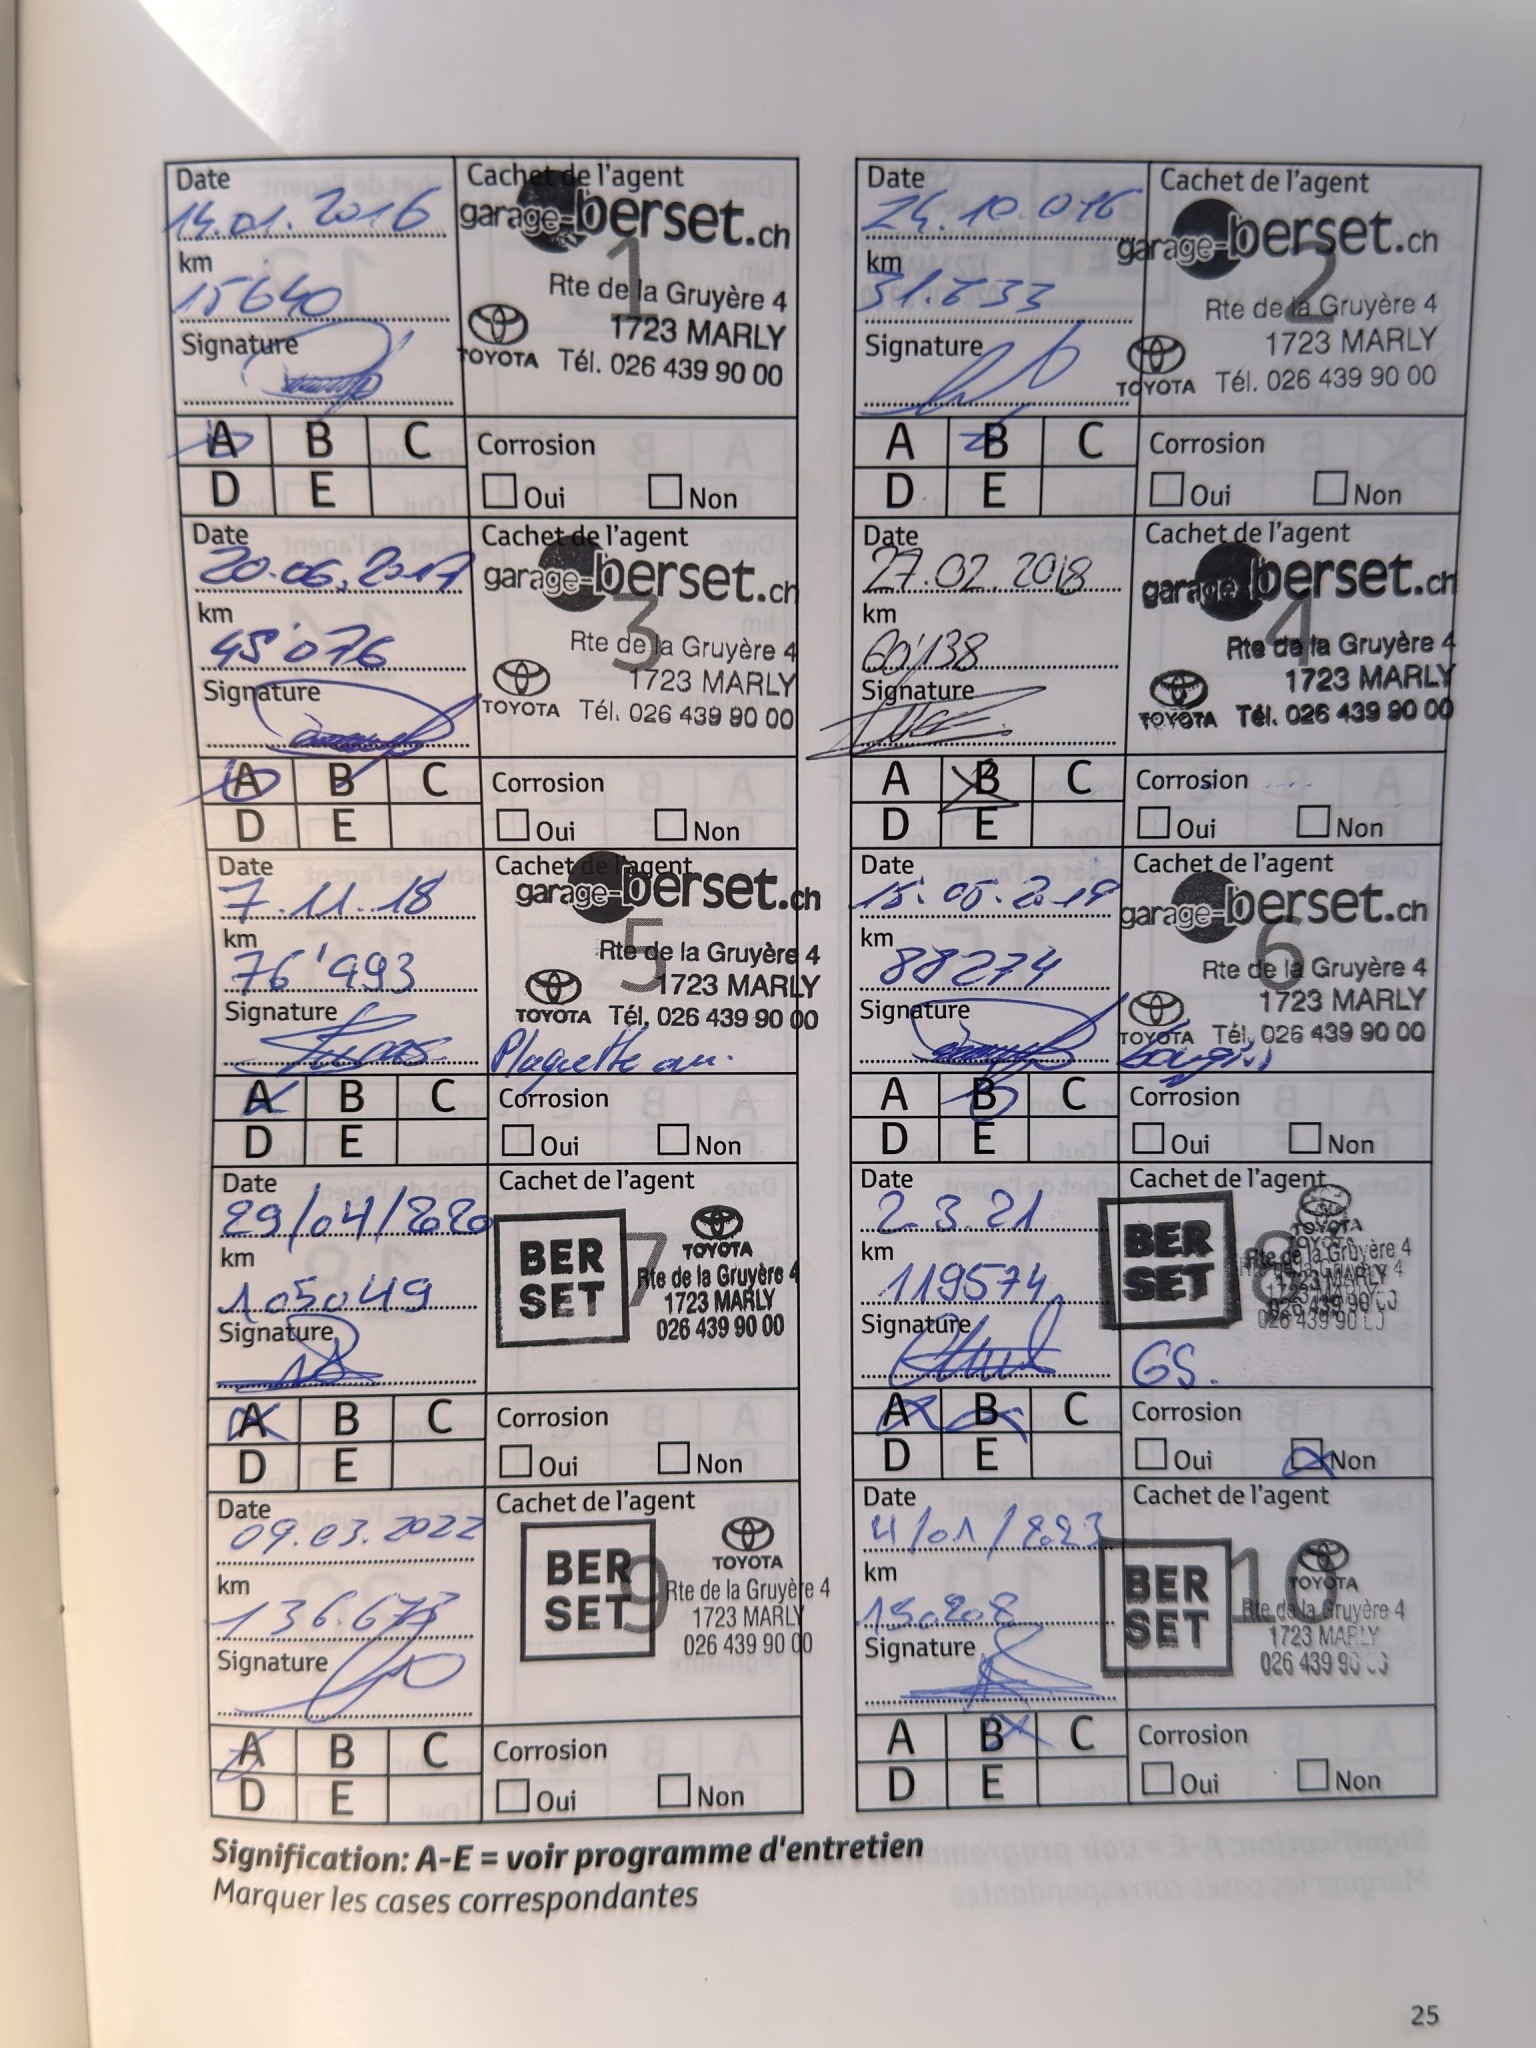 Date
14.01.2016
km
15640
Signature
Cachet de l'agent
garage-berset.ch
1
Rte de la Gruyère 4
1723 MARLY
TOYOTA Tél. 026 439 90 00
A B C
D E
Corrosion
Oui Non
Date
24.10.016
km
Signature
Cachet de l'agent
garage-berset.ch
2
Rte de la Gruyère 4
1723 MARLY
TOYOTA Tél. 026 439 90 00
A B C
D E
Corrosion
Oui Non
Date
20.06.2017
km
45'076
Signature
Cachet de l'agent
garage-berset.ch
3
Rte de la Gruyère 4
1723 MARLY
TOYOTA Tél. 026 439 90 00
A B C
D E
Corrosion
Oui Non
Date
27.02.2018
km
60'138
Signature
Cachet de l'agent
garage-berset.ch
4
Rte de la Gruyère 4
1723 MARLY
TOYOTA Tél. 026 439 90 00
A B C
D E
Corrosion
Oui Non
Date
7.11.18
km
76'993
Signature
Cachet de l'agent
garage-berset.ch
5
Rte de la Gruyère 4
1723 MARLY
TOYOTA Tél. 026 439 90 00
Plaquette
A B C
D E
Corrosion
Oui Non
Date
15.05.2019
km
88274
Signature
Cachet de l'agent
garage-berset.ch
6
Rte de la Gruyère 4
1723 MARLY
TOYOTA Tél. 026 439 90 00
A B C
D E
Corrosion
Oui Non
Date
29/04/2020
km
105049
Signature
Cachet de l'agent
BER
SET
7
TOYOTA
Rte de la Gruyère 4
1723 MARLY
026 439 90 00
A B C
D E
Corrosion
Oui Non
Date
2.3.21
km
119574
Signature
Cachet de l'agent
BER
SET
8
TOYOTA
Rte de la Gruyère 4
1723 MARLY
026 439 90 00
GS.
A B C
D E
Corrosion
Oui Non
Date
09.03.2022
km
136.673
Signature
Cachet de l'agent
BER
SET
9
TOYOTA
Rte de la Gruyère 4
1723 MARLY
026 439 90 00
A B C
D E
Corrosion
Oui Non
Date
4/01/2023
km
Signature
Cachet de l'agent
BER
SET
10
TOYOTA
Rte de la Gruyère 4
1723 MARLY
026 439 90 00
A B C
D E
Corrosion
Oui Non
Signification: A-E = voir programme d'entretien
Marquer les cases correspondantes
25